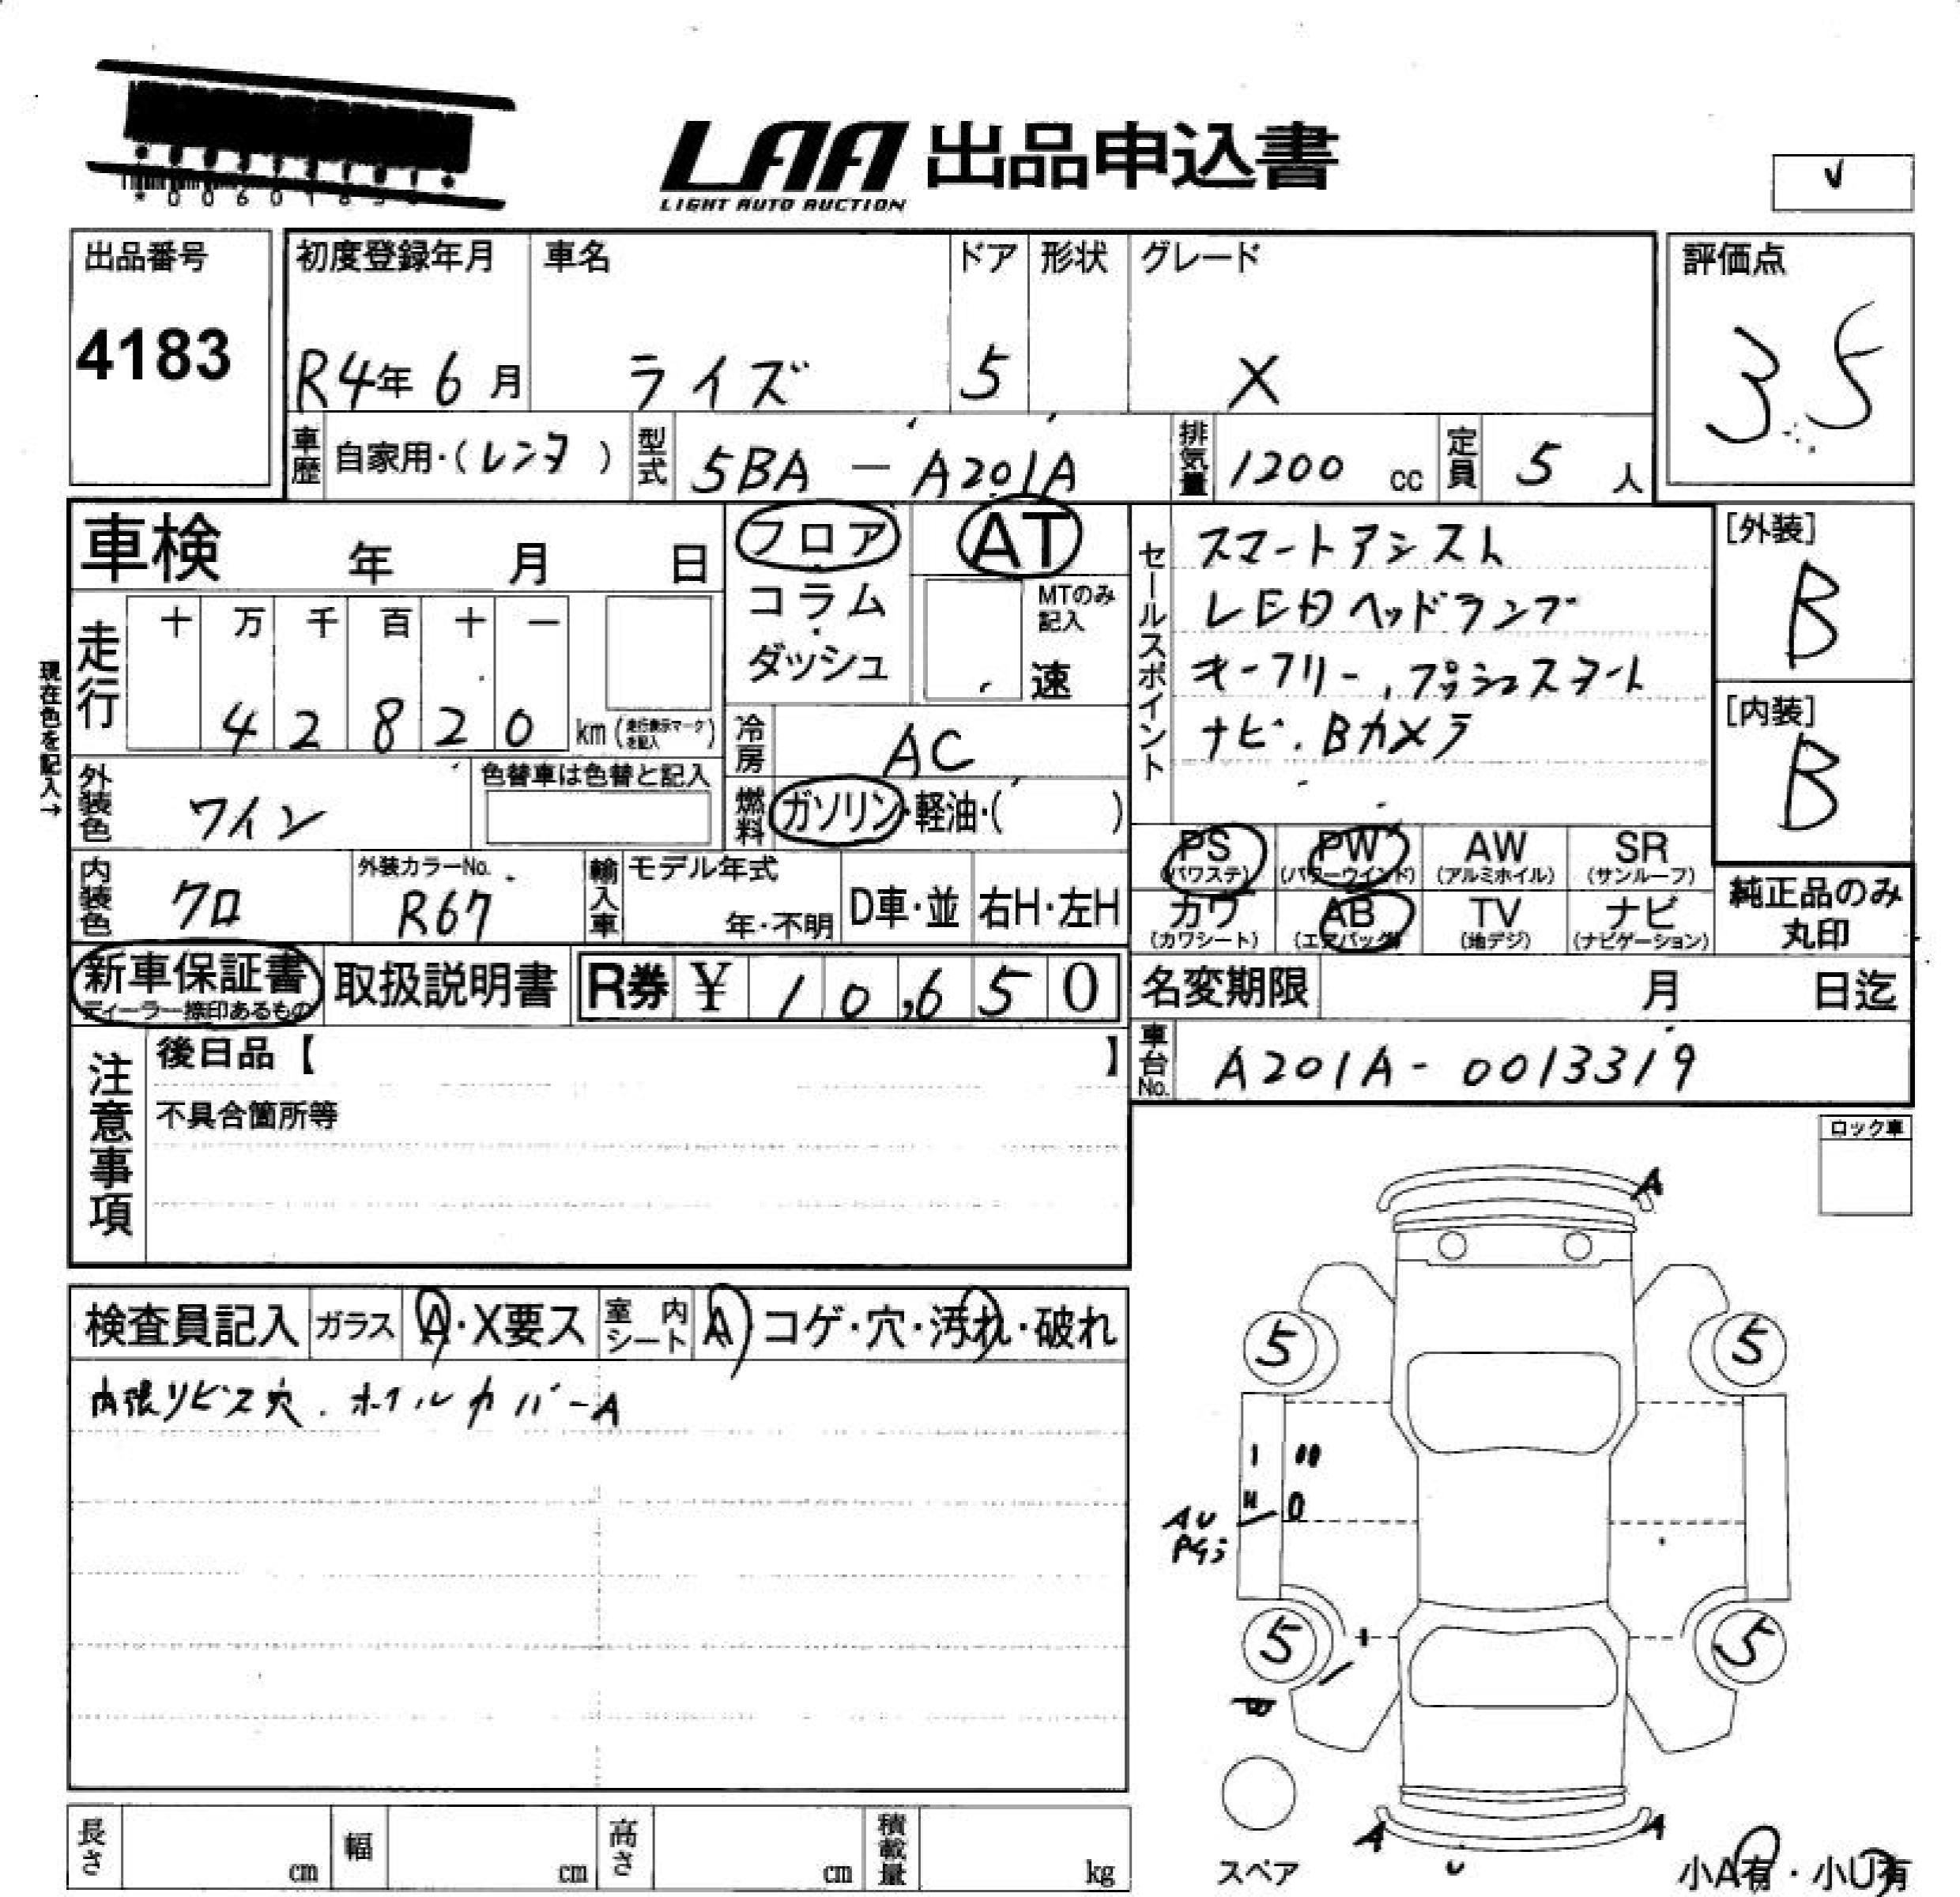 LAA 出品申込書
LIGHT AUTO AUCTION
v
出品番号
4183
初度登録年月
R4年 6月
車名
ライズ
ドア
5
形状
グレード
X
評価点
3.5
車歴
自家用・(レンタ)
型式
5BA - A201A
排気量
1200 cc
定員
5 人
車検 年 月 日
現在色を記入→
走行
十 万 千 百 十 一
4 2 8 2 0 km
外装色
ワイン
色替車は色替と記入
内装色
クロ
外装カラーNo.
R67
フロア
・
コラム
・
ダッシュ
AT
MTのみ記入
速
冷房
AC
燃料
ガソリン・軽油・( )
輸入車
モデル年式
年・不明
D車・並
右H・左H
セールスポイント
スマートアシスト
LEDヘッドランプ
キーフリー、プッシュスタート
ナビ、Bカメラ
[外装]
B
[内装]
B
PS
(パワステ)
PW
(パワーウインド)
AW
(アルミホイル)
SR
(サンルーフ)
カワ
(カワシート)
AB
(エアバッグ)
TV
(地デジ)
ナビ
(ナビゲーション)
純正品のみ
丸印
新車保証書
ディーラー捺印あるもの
取扱説明書
R券 ¥ 10,650
名変期限 月 日迄
車台No.
A201A- 0013319
注意事項
後日品【 】
不具合箇所等
ロック車
検査員記入
ガラス
A・X要ス
室内シート
A コゲ・穴・汚れ・破れ
内張リビス穴. ホイルカバーA
A
5
5
AU
5
5
A
A
U
スペア
小A有・小U有
長さ cm
幅 cm
高さ cm
積載量 kg